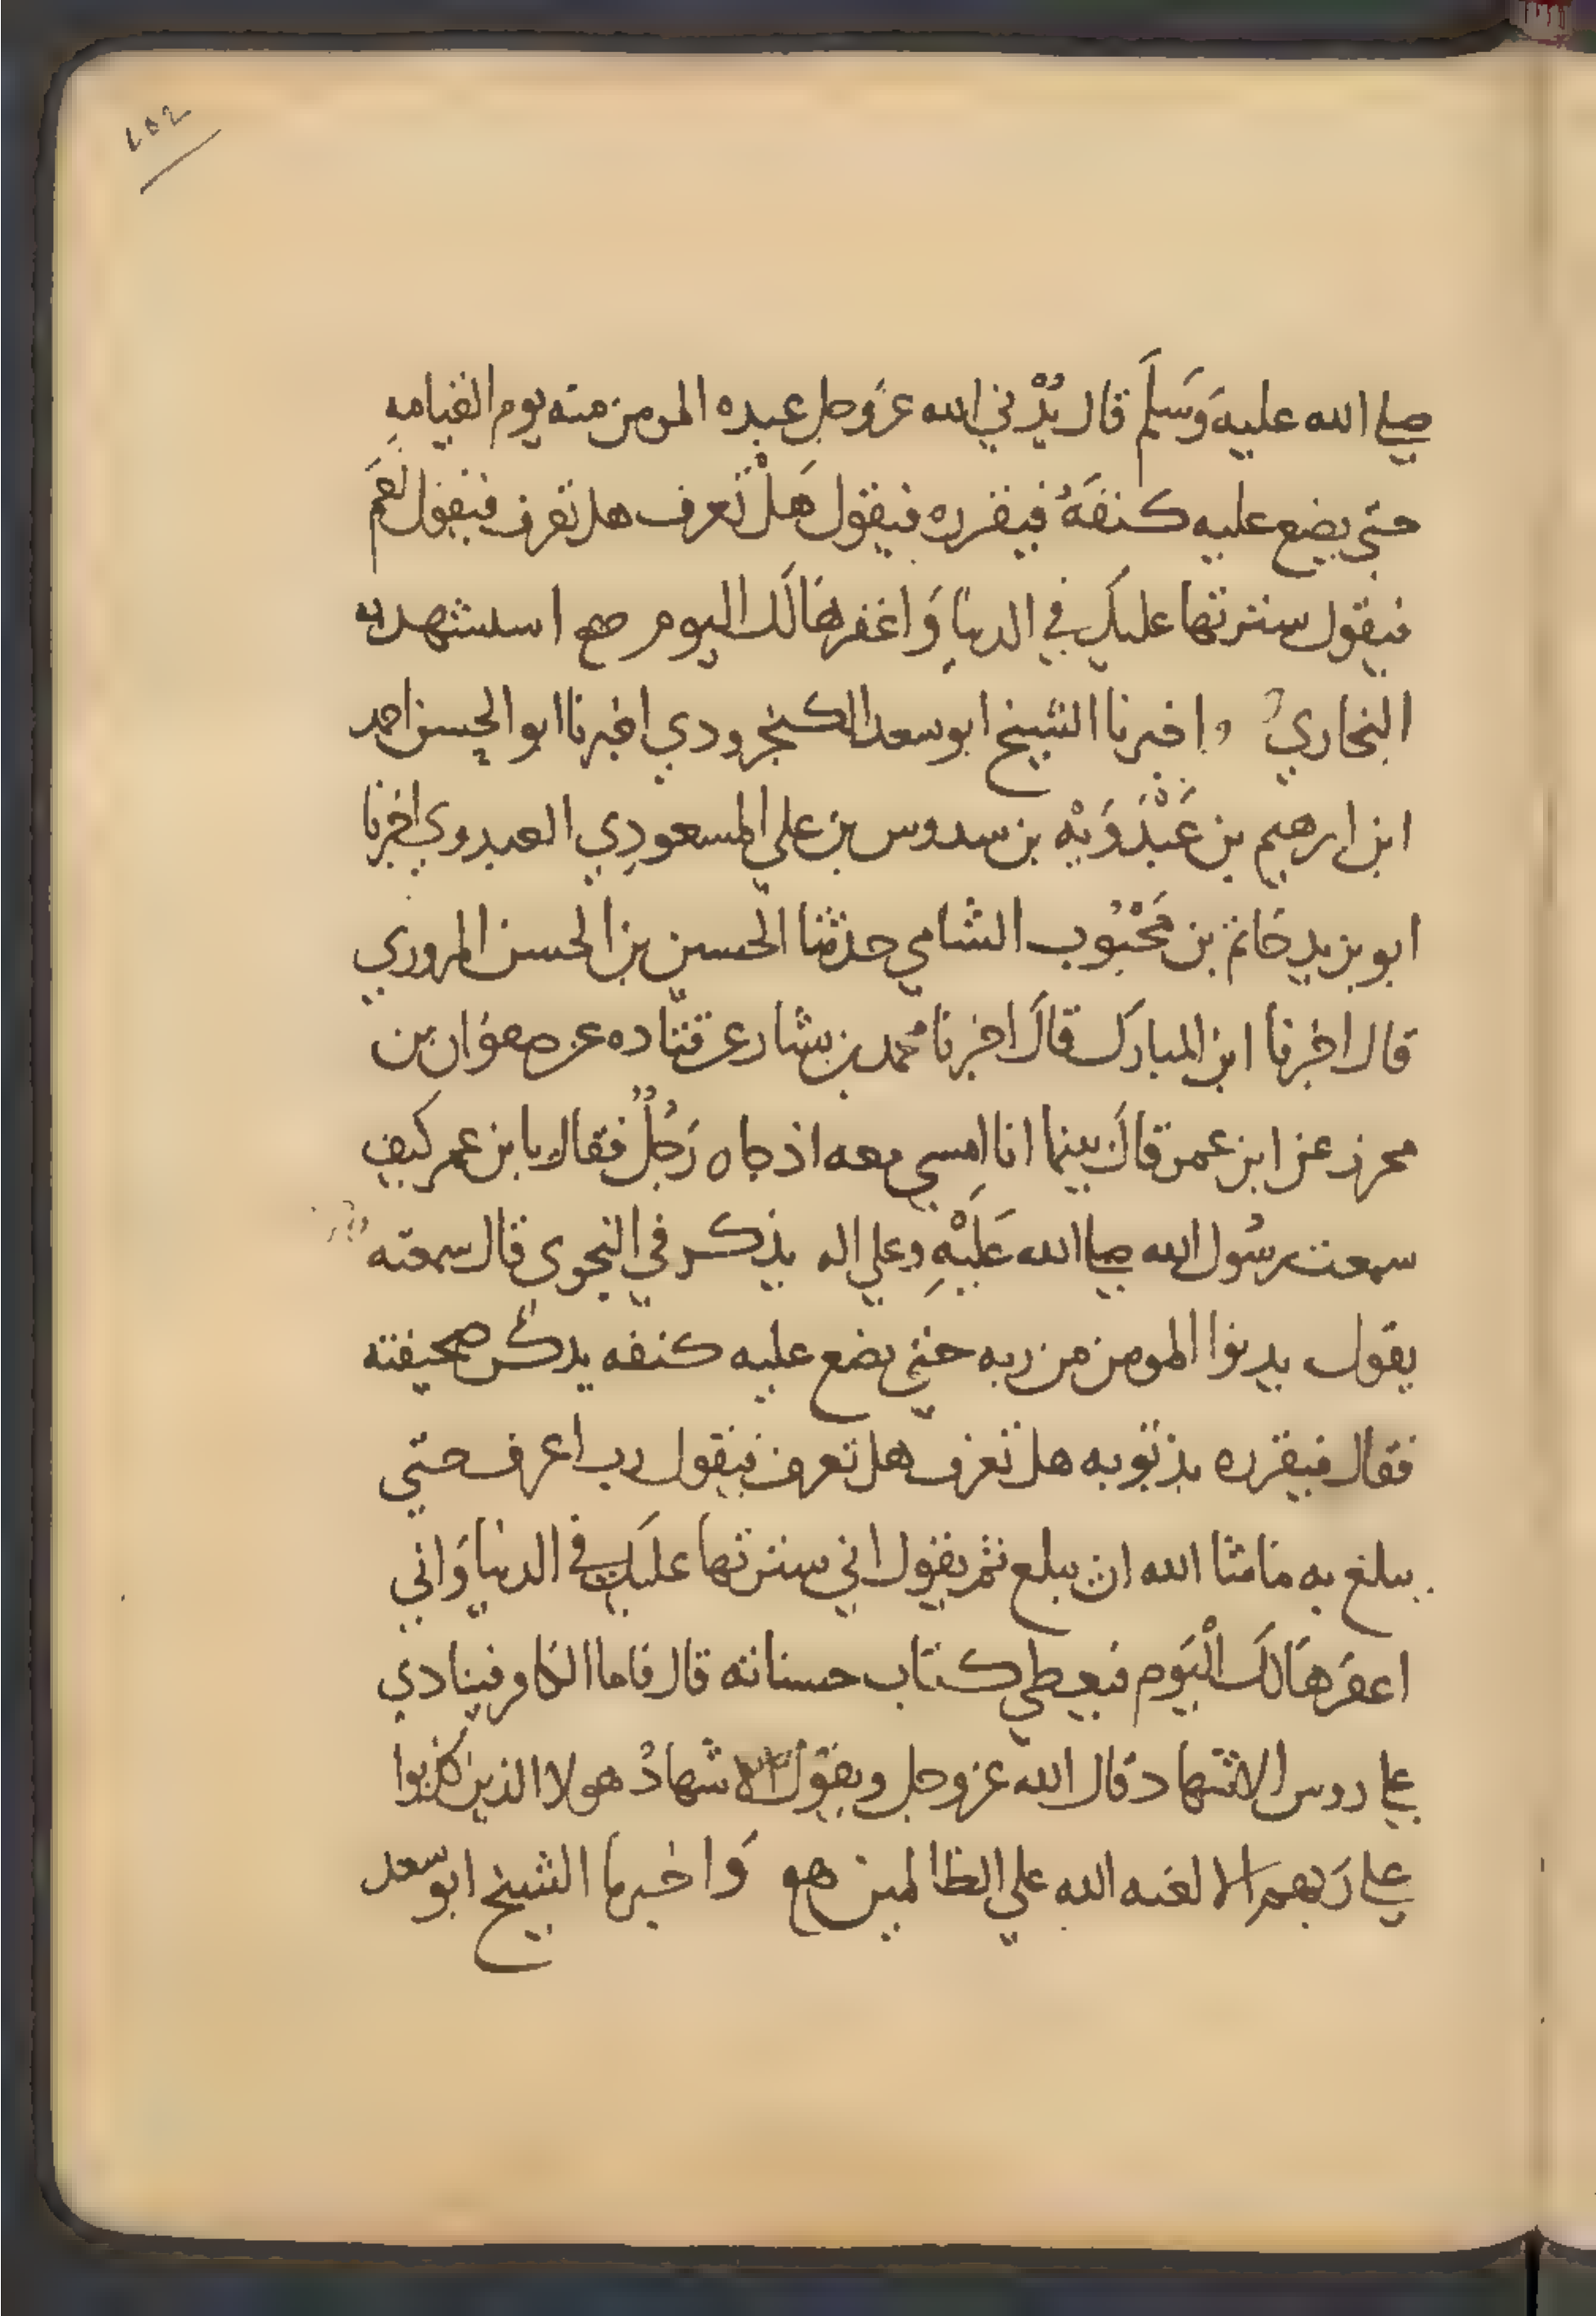 ٤٥٢
صلى الله عليه وَسَلم قال يُدْني الله عز وجل عبده المومن منه يوم القيامه
حتي يضع عليه كنفَهُ فيقرره فيقول هَلْ تَعرف هل تعرف فيقول نعم
فيقول سترتها عليك في الدنيا وَاغفرها لَك اليوم صح استشهد به
البخاري واخبرنا الشيخ ابو سعد الكنجرودي اخبرنا ابو الحسن احمد
ابن ابرهيم بن عَبْدَوَيْه بن سدوس بن علي المسعودِي العبدوي اخبرنا
ابو يزيد حَاتم بن مَحْبُوب الشامي حدثنا الحسين بن الحسن المروري
قال اخبرنا ابن المبارك قالَ اخبرنا محمد بن بشار عن قتاده عن صفوان بن
محرز عن ابن عمر قالَ بينما انا امسي معه اذ جاه رَجُلٌ فقال يا بن عمر كيف
سمعت رسُول الله صلى الله عَلَيْهِ وعلي اله يذكر في النجوى قال سمعته
يقول يدنوا المومن من ربه حتي يضع عليه كنفه يذكر صحيفته
فقال فيقرره بذنوبه هل تعرف هل تعرف فيقول رب اعرف حتي
يبلغ به مَا شا الله ان يبلع ثم يقول اني سترتها عليك في الدنيا وَاني
اعفرهَا لَك الْيَوم فيعطي كتاب حسناته قال فاما الكافر فينادي
على روس الاشهاد قال الله عز وجل ويقول الاشهادُ هولا الذين كذبوا
على رَبهم الا لعنه الله علي الظالمين هع وَاخبرنا الشيخ ابو سعد